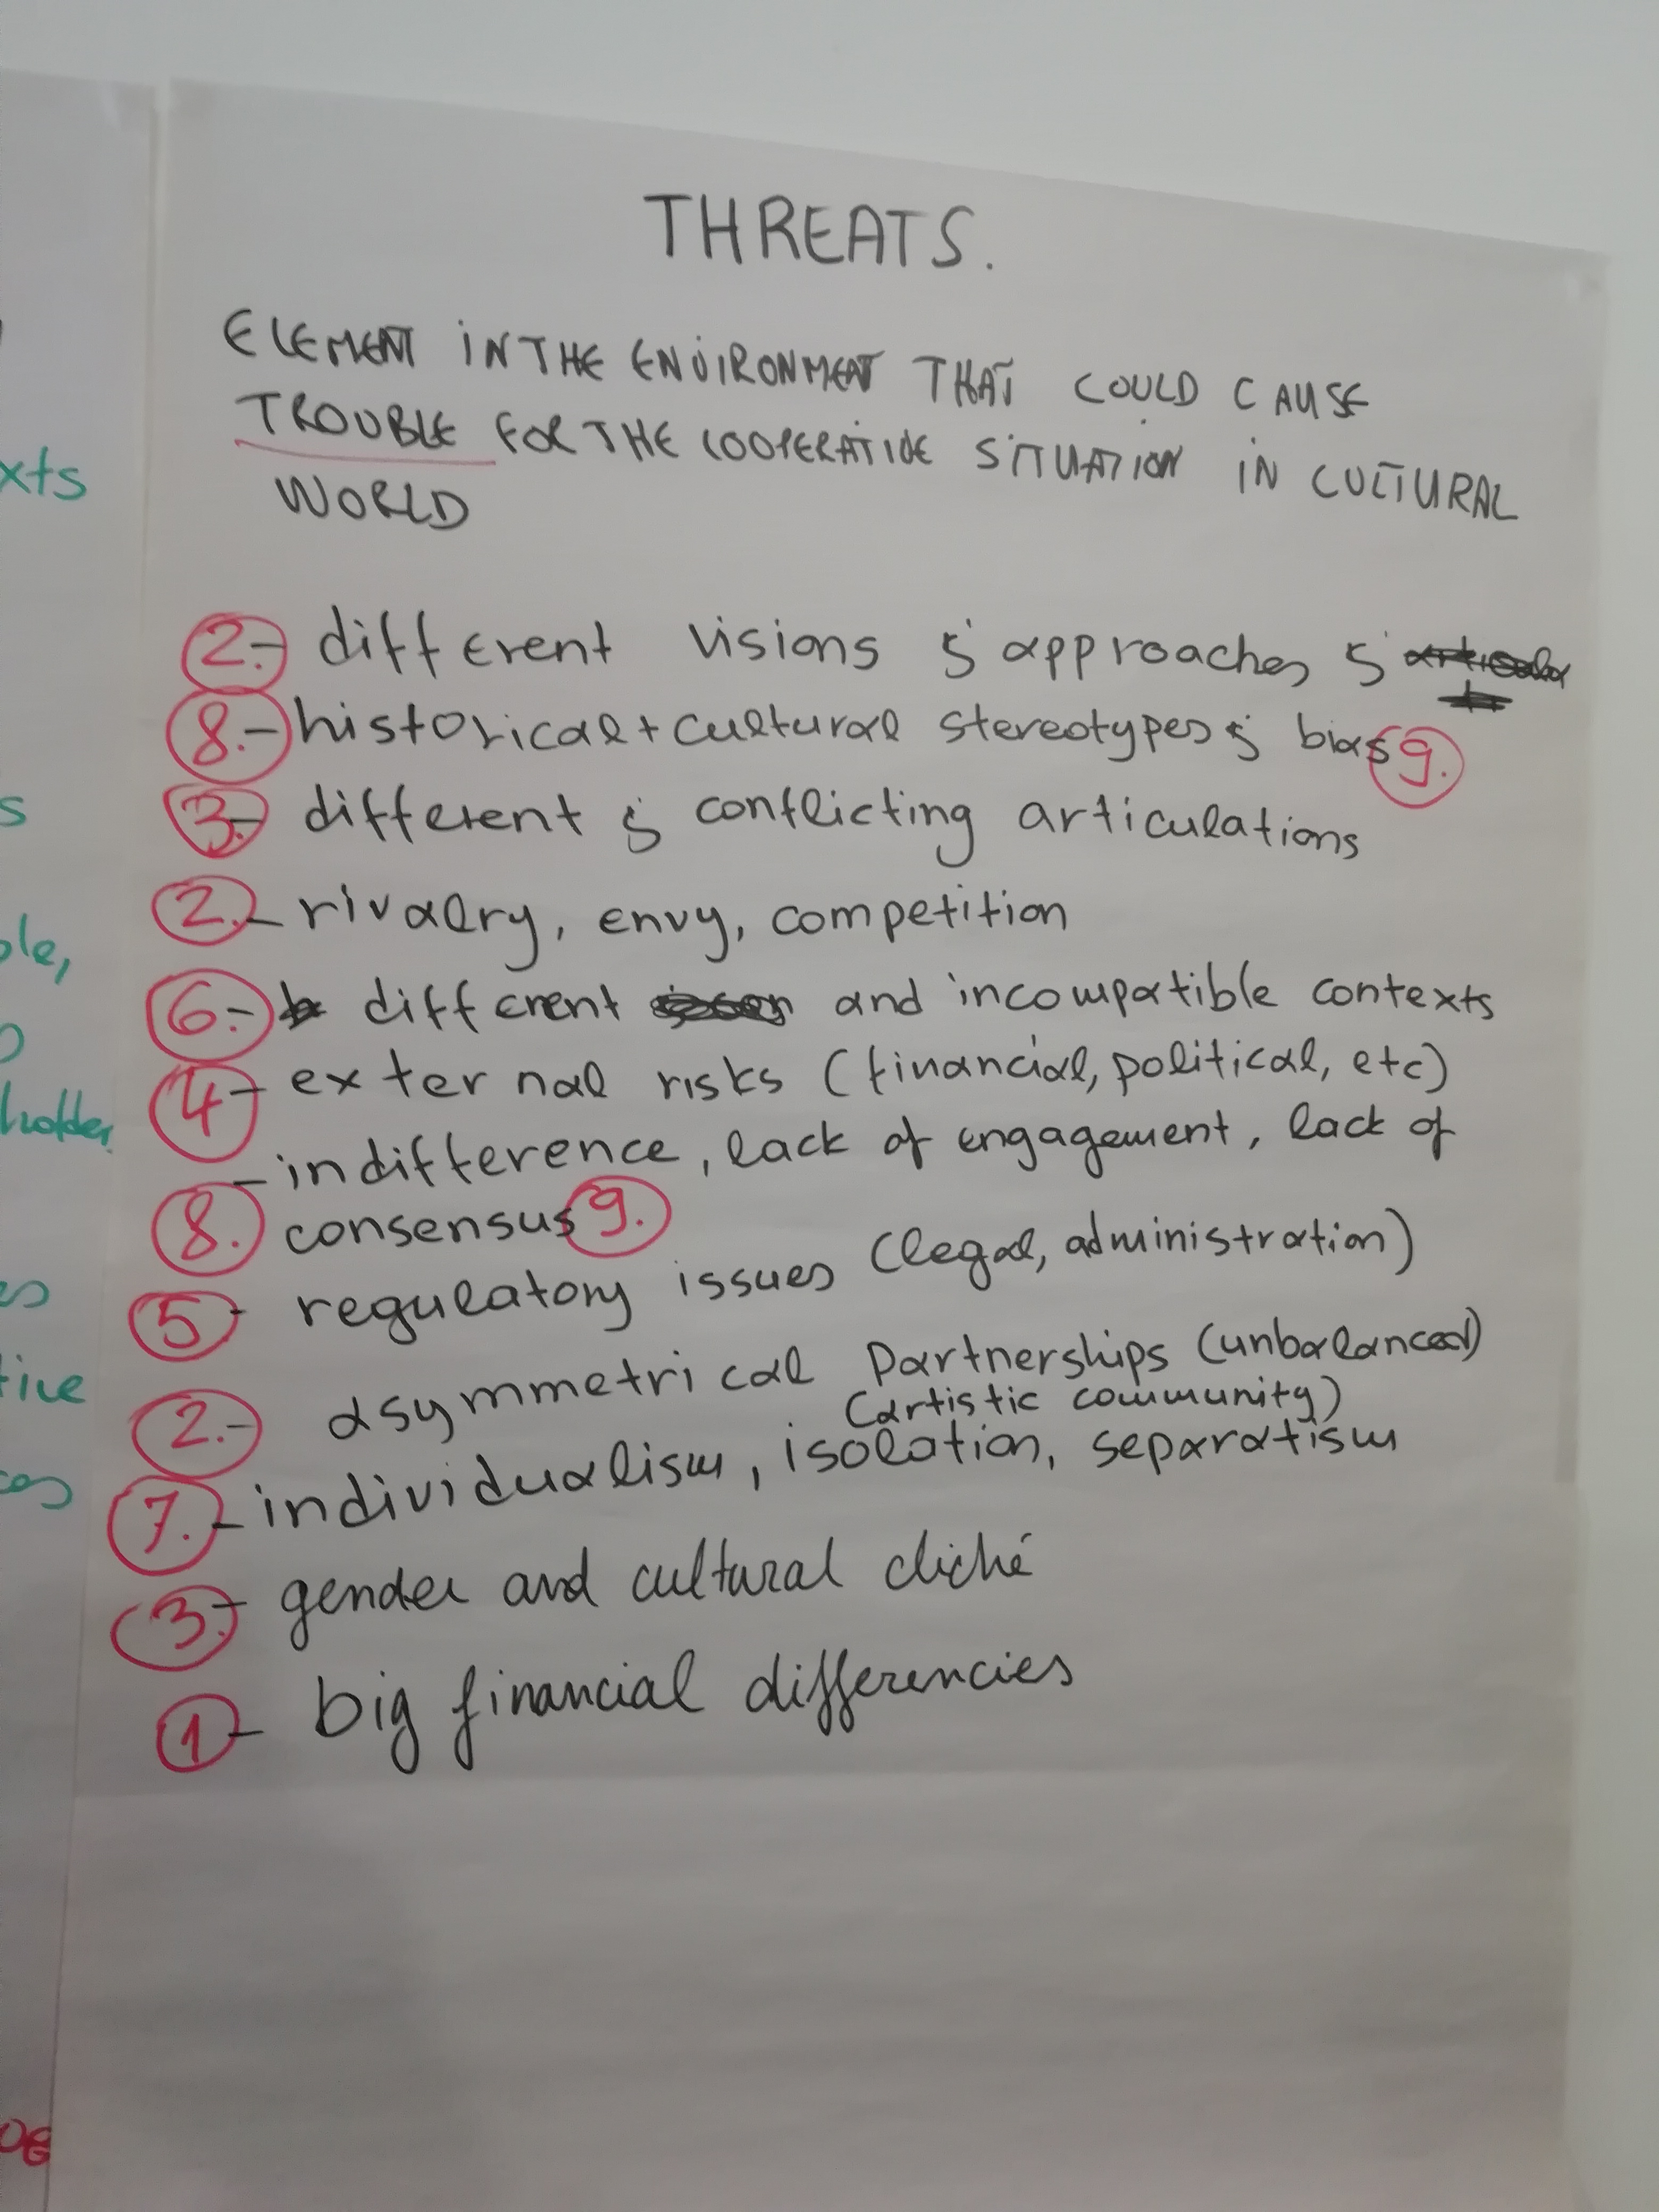 THREATS.
ELEMENT IN THE ENVIRONMENT THAT COULD CAUSE
TROUBLE FOR THE COOPERATIVE SITUATION IN CULTURAL
WORLD
2.- different visions & approaches &
8.- historical + cultural stereotypes & bias 9.
3.- different & conflicting articulations
2.- rivalry, envy, competition
6.- different and incompatible contexts
4- external risks (financial, political, etc)
- indifference, lack of engagement, lack of
8. consensus 9.
5- regulatory issues (legal, administration)
2.- asymmetrical partnerships (unbalanced)
(artistic community)
7.- individualism, isolation, separatism
3.- gender and cultural cliché
1- big financial differencies
xts
s
ole,
holder
es
tive
ces